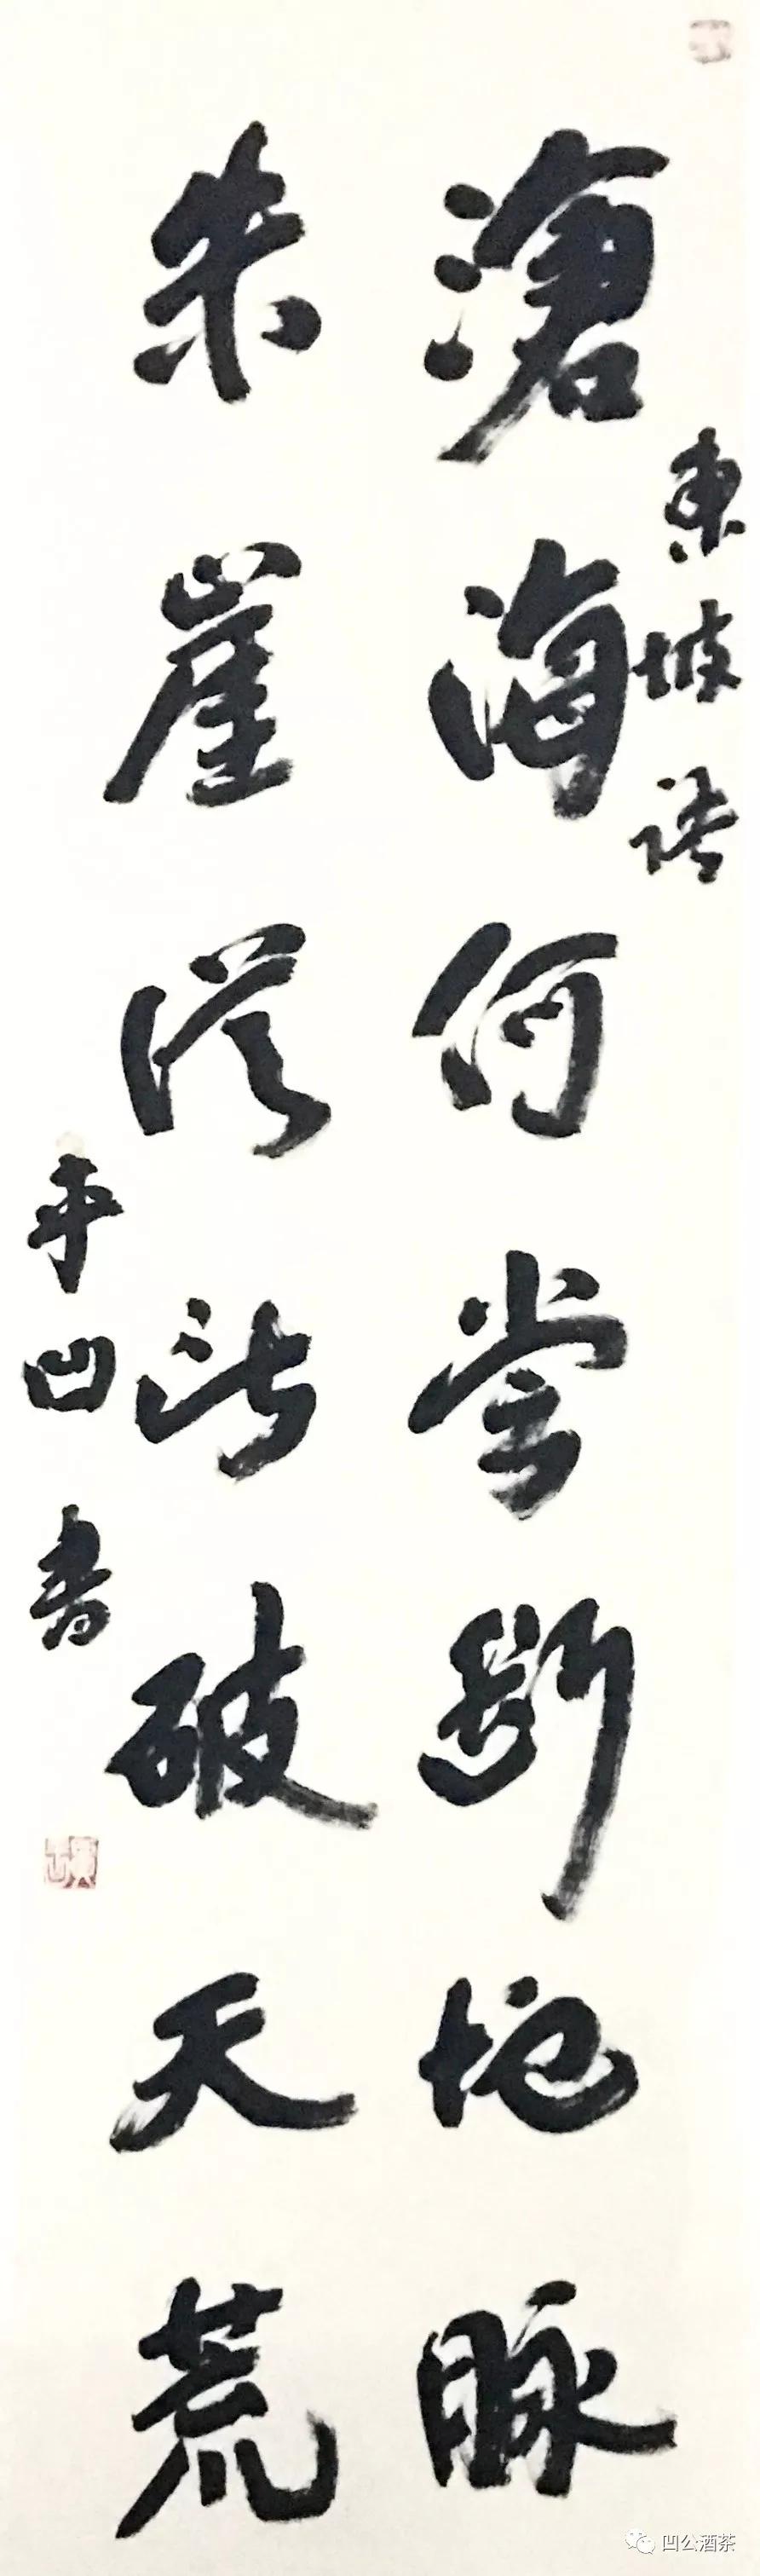 東坡語
滄海何嘗斷地脉
朱崖從此破天荒
平凹書
凹公酒茶